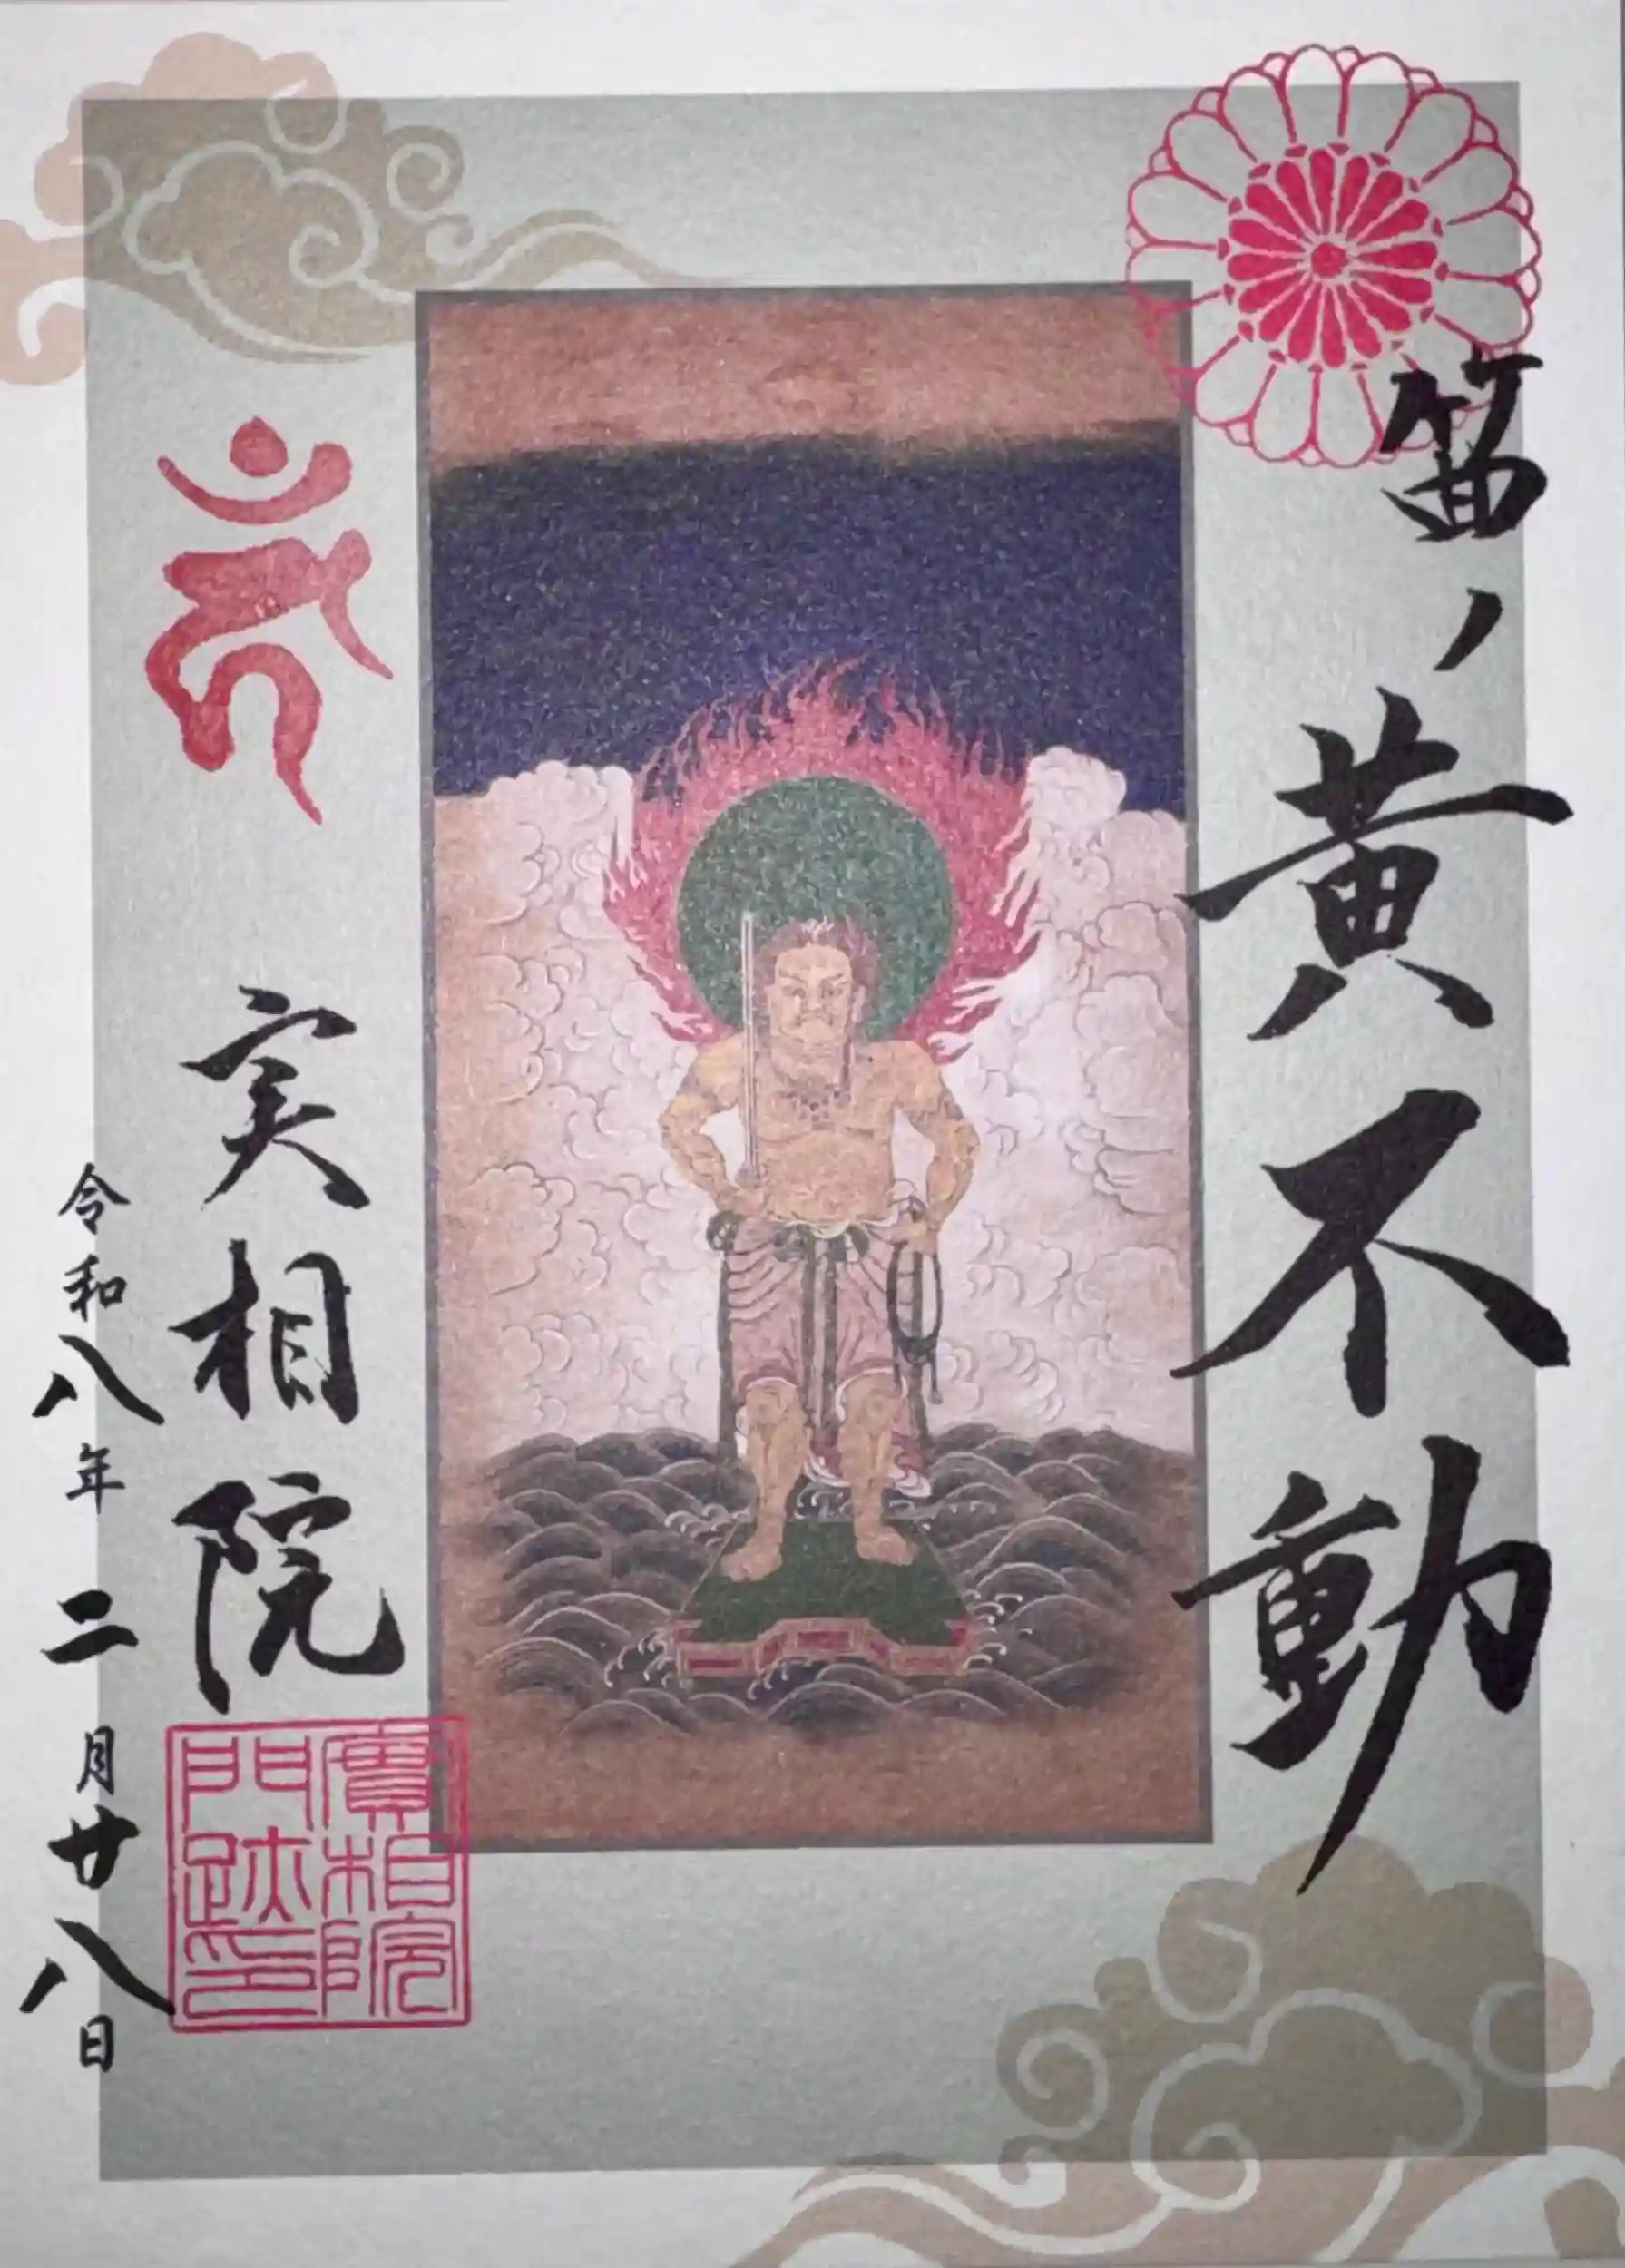 笛ノ黄不動
𑖮𑖯𑖽
実相院
實相院
門跡印
令和八年二月廿八日